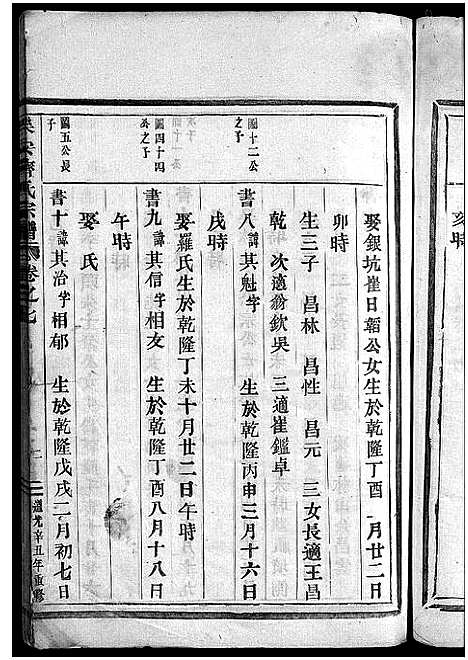 亥時
娶銀坑崔日韜公女生於乾隆丁酉 月廿二日
卯時
生三子 昌林 昌性 昌元 三女長適王昌
乾 次適翁欽吳 三適崔鑑卓
圖十二公之子
書八諱其魁字 生於乾隆丙申三月十六日
戌時
娶羅氏生於乾隆丁未十月廿二日午時
圖四十四公之子
書九諱其信字相友 生於乾隆丁酉八月十八日
午時
娶 氏
圖五公長子
書十諱其治字相郁 生於乾隆戊戌二月初七日
氏宗譜 卷之七 道光辛丑年重修